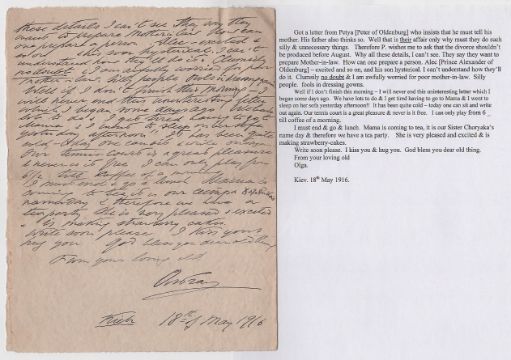 these details I can't see They say they
want to prepare Mother-in-law. How can
one prepare a person
understand how they'll do it. Clumsily
no doubt & I am awfully worried for poor
mother-in-law. Silly people fools in dressing
Well if I don't finish this morning - I
will never end this uninteresting letter
which I began some days ago. We have
lots to do & I get tired having to go to
Mama & I want to sleep on her sofa
yesterday afternoon. It has been quite
cold - today one can sit & write out again
Our tennis court is a great pleasure
& never is it free. I can only play from
6 till coffee of a morning.
I must end & go & lunch. Mama is
coming to tea, it is our
nameday & therefore we have a
tea party. She is very pleased & excited
& is making strawberry-cakes.
Write soon please. I kiss you &
hug you God bless you dear old thing
From your loving old
Olga
Kiev 18th of May 1916
Got a letter from Petya [Peter of Oldenburg] who insists that he must tell his
mother. His father also thinks so. Well that is their affair only why must they do such
silly & unnecessary things Therefore P. wishes me to ask that the divorce shouldn't
be produced before August. Why all these details, I can't see. They say they want to
prepare Mother-in-law. How can one prepare a person. Alec [Prince Alexander of
Oldenburg] – excited and so on, and his son hysterical. I can't understand how they'll
do it. Clumsily no doubt & I am awfully worried for poor mother-in-law. Silly
people. fools in dressing gowns.
Well if I don't finish this morning – I will never end this uninteresting letter which I
began some days ago. We have lots to do & I get tired having to go to Mama & I want to
sleep on her sofa yesterday afternoon! It has been quite cold - today one can sit and write
out again. Our tennis court is a great pleasure & never is it free. I can only play from 6
till coffee of a morning.
I must end & go & lunch. Mama is coming to tea, it is our Sister Choryaka's
name day & therefore we have a tea party. She is very pleased and excited & is
making strawberry-cakes.
Write soon please. I kiss you & hug you. God bless you dear old thing.
From your loving old
Olga.
Kiev. 18th May 1916.